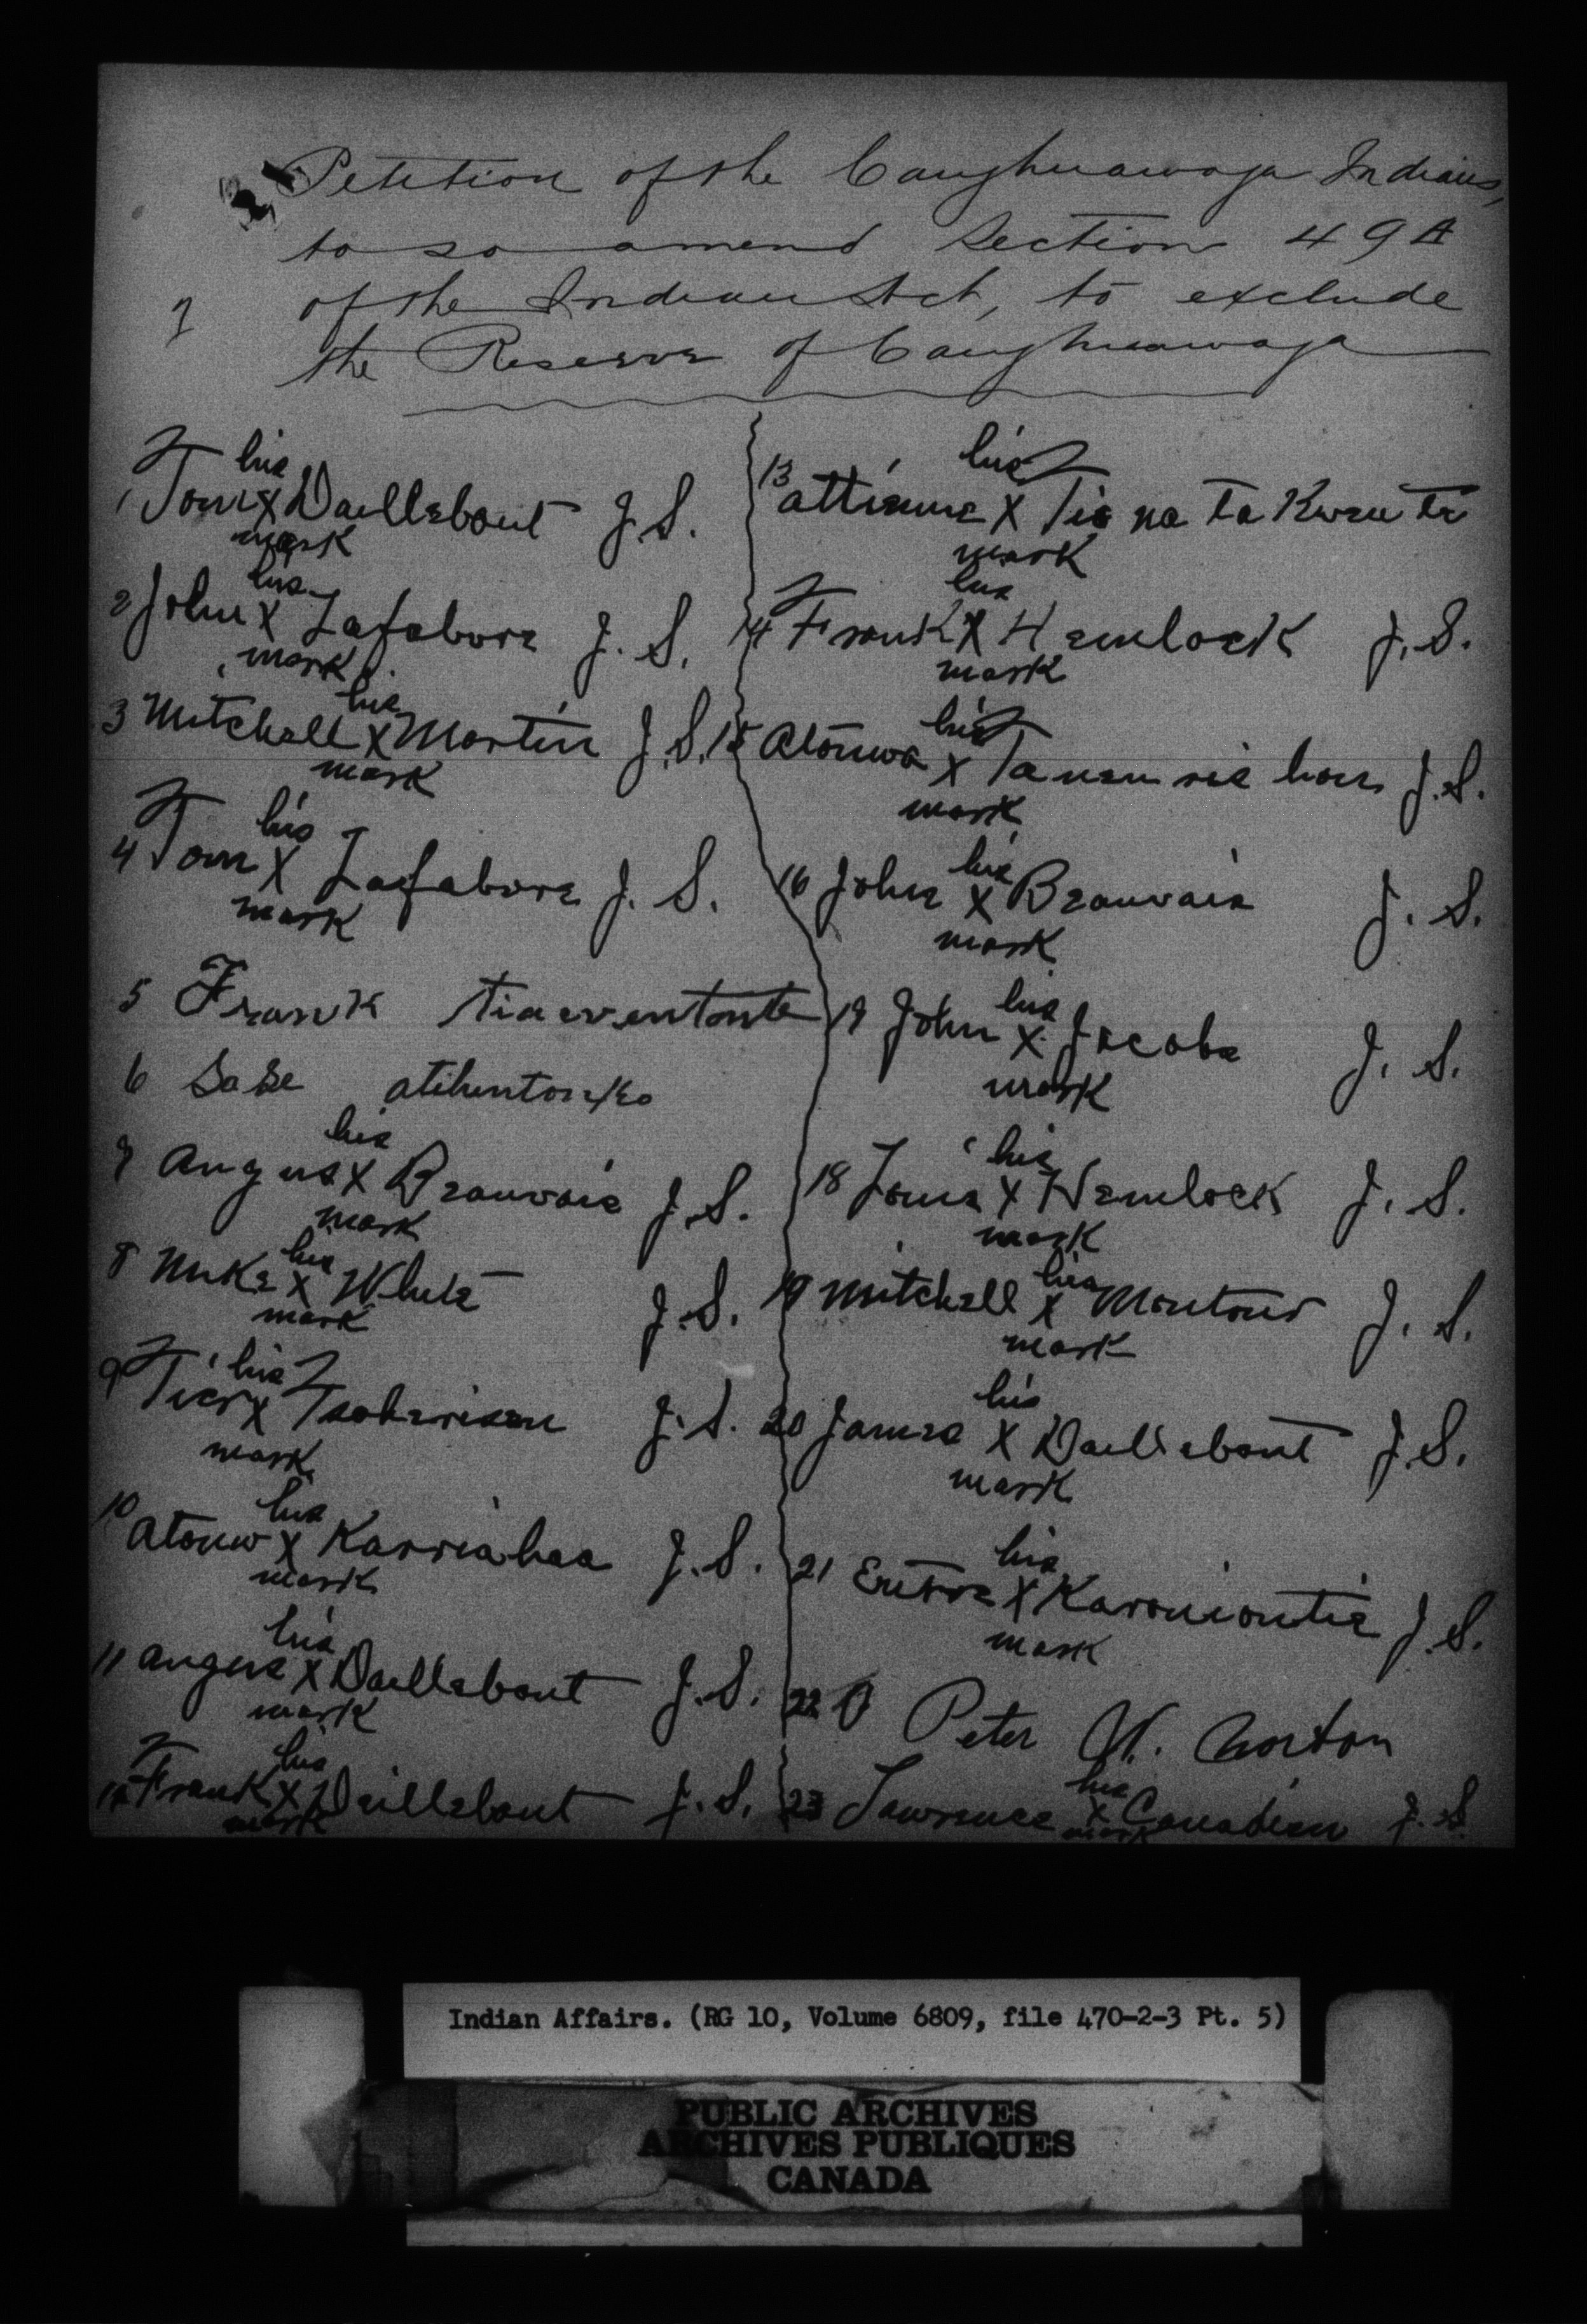 Petition of the Caughnawaga Indians,
to so amend Section 49A
of the Indian Act, to exclude
the Reserve of Caughnawaga
his
1 Tom X Daillebout J. S.
mark
his
2 John X Lafabvre J. S.
mark
his
3 Mitchell X Martin J. S.
mark
his
4 Tom X Lafabvre J. S.
mark
5 Frank
6 Sose
his
7 Angus X Beauvais J. S.
mark
his
8 Mike X White J. S.
mark
his
9 Tier X J. S.
mark
his
10 Atonw X Karriahaa J. S.
mark
his
11 Angus X Daillebout J. S.
mark
his
12 Frank X Daillebout J. S.
mark
his
13 Attienne X Tio na ta Kwen te
mark
his
14 Frank X Hemlock J. S.
mark
his
15 Atonwa X J. S.
mark
his
16 John X Beauvais J. S.
mark
his
17 John X Jacobs J. S.
mark
his
18 Louis X Hemlock J. S.
mark
his
19 Mitchell X Montour J. S.
mark
his
20 James X Daillebout J. S.
mark
his
21 X Karoniontie J. S.
mark
22 Peter W. Norton
his
23 Lawrence X Canadien J. S.
mark
Indian Affairs. (RG 10, Volume 6809, file 470-2-3 Pt. 5)
PUBLIC ARCHIVES
ARCHIVES PUBLIQUES
CANADA